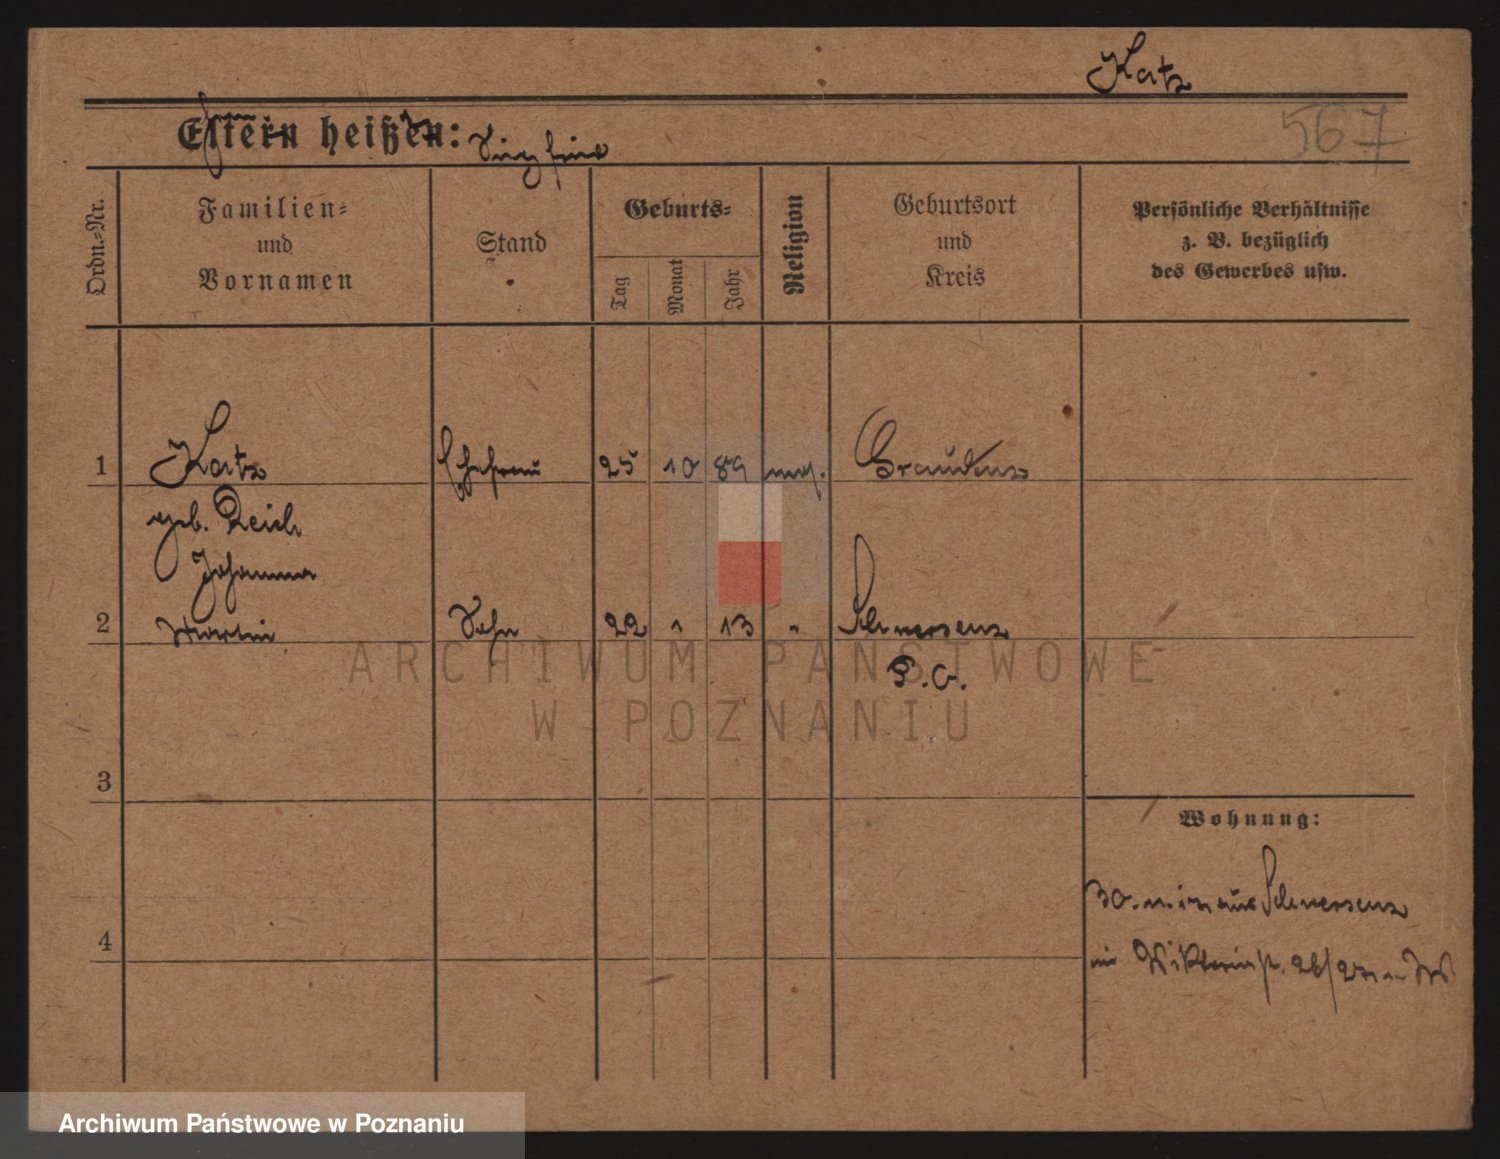 Katz
567
Eltern heißen: Siegfried
Ordn.-Nr.
Familien-
und
Vornamen
Stand
Geburts-
Tag
Monat
Jahr
Religion
Geburtsort
und
Kreis
Persönliche Verhältnisse
z. B. bezüglich
des Gewerbes usw.
1 Katz Ehefrau 25 10 89 mos. Graudenz
geb. Reich
Johanna
2 Martin Sohn 22 1 13 " Schwersenz
P. O.
3
Wohnung:
30. aus Schwersenz
4
ARCHIWUM PAŃSTWOWE
W POZNANIU
Archiwum Państwowe w Poznaniu